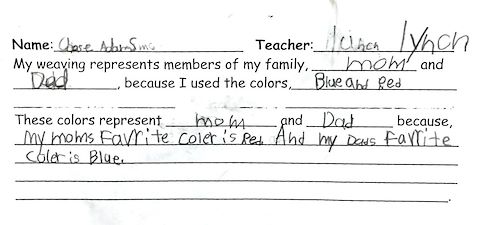 Name: Chase Adams Teacher: Lynch
My weaving represents members of my family, mom and
Dad, because I used the colors, Blue and Red
These colors represent mom and Dad because,
My moms Favrite coler is Red And my Dads favrite
coler is Blue.